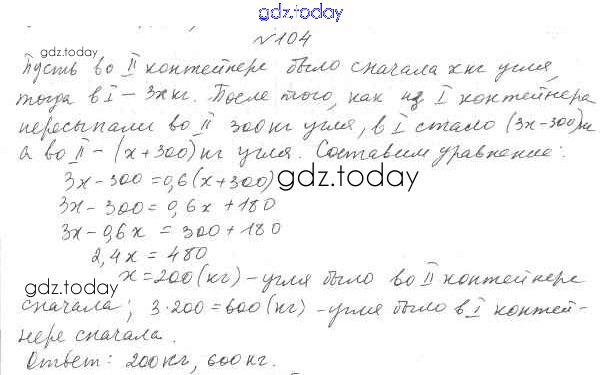 gdz.today
№104
gdz.today
Пусть во II контейнере было сначала x кг угля,
тогда в I – 3x кг. После того, как из I контейнера
пересыпали во II 300 кг угля, в I стало (3x-300)кг
а во II – (x+300) кг угля. Составим уравнение:
3x-300=0,6(x+300)
gdz.today
3x-300=0,6x+180
3x-0,6x=300+180
2,4x=480
x=200(кг) – угля было во II контейнере
gdz.today
сначала; 3·200=600(кг) – угля было в I контей-
нере сначала.
Ответ: 200кг, 600кг.
gdz.today